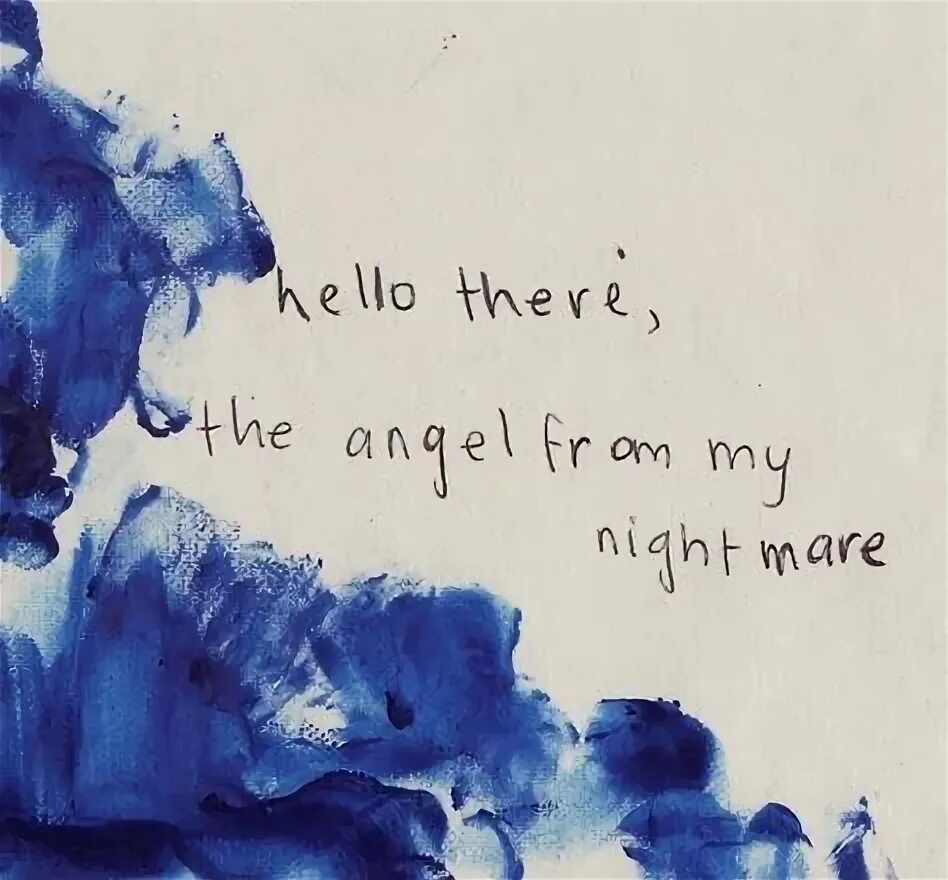 hello there,
the angel from my
nightmare